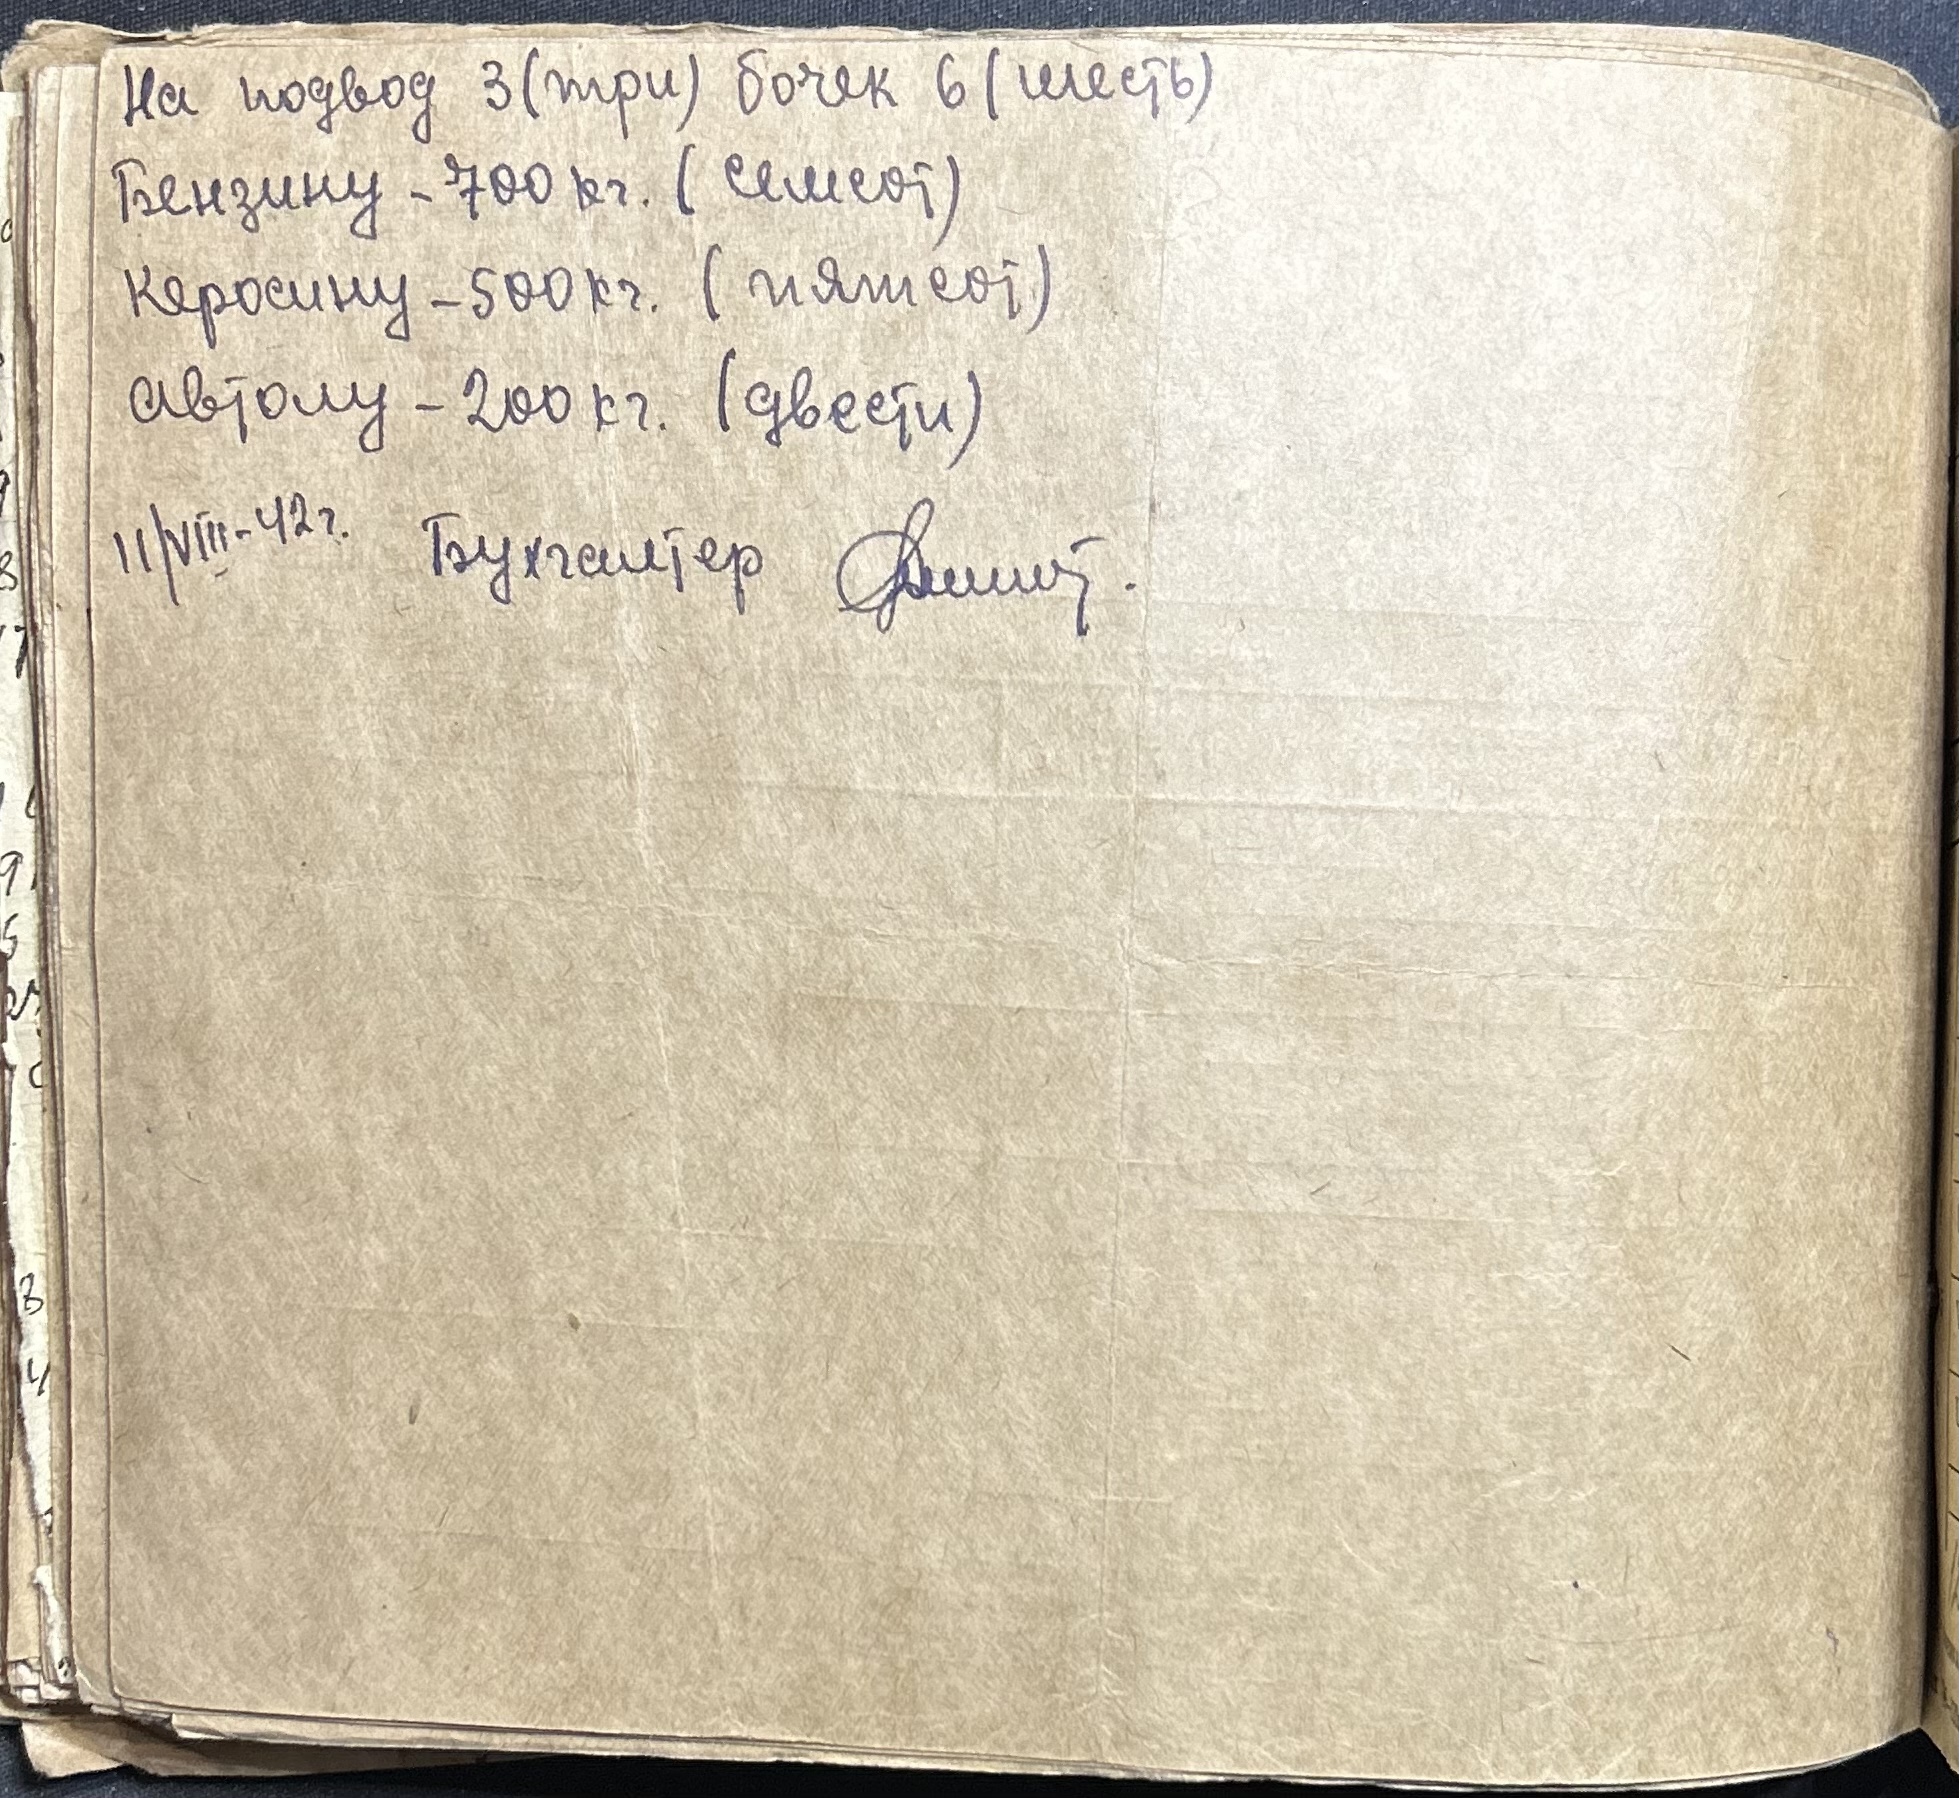 На подвод 3 (три) бочек 6 (шесть)
Бензину - 700 кг. (семсот)
Керосину - 500 кг. (пятсот)
Автолу - 200 кг. (двести)
11/VIII-42 г. Бухгалтер